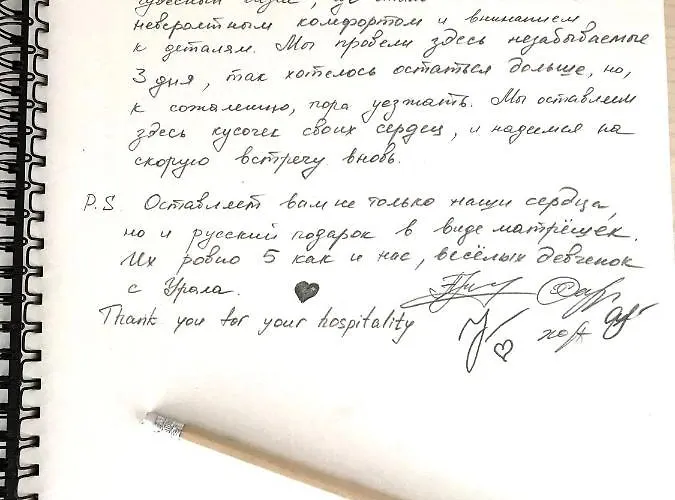 невероятным комфортом и вниманием
к деталям. Мы провели здесь незабываемые
3 дня, так хотелось остаться дольше, но,
к сожалению, пора уезжать. Мы оставляем
здесь кусочек своих сердец, и надеемся на
скорую встречу вновь.
P.S. Оставляем вам не только наши сердца,
но и русский подарок в виде матрёшек.
Их ровно 5 как и нас, весёлых девченок
с Урала.
Thank you for your hospitality